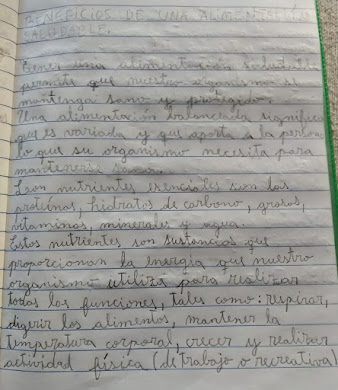 BENEFICIOS DE UNA ALIMENTACION
SALUDABLE.
Tener una alimentación saludable
permite que nuestro organismo se
mantenga sano y protegido.
Una alimentación balanceada significa
que es variada y que aporta a la persona
lo que su organismo necesita para
mantenerse sano.
Leon nutrientes esenciales son las
proteínas, hidratos de carbono, grasas,
vitaminas, minerales y agua.
Estos nutrientes son sustancias que
proporcionan la energía que nuestro
organismo utiliza para realizar
todas las funciones, tales como: respirar,
digerir los alimentos, mantener la
temperatura corporal, crecer y realizar
actividad física (de trabajo o recreativa)